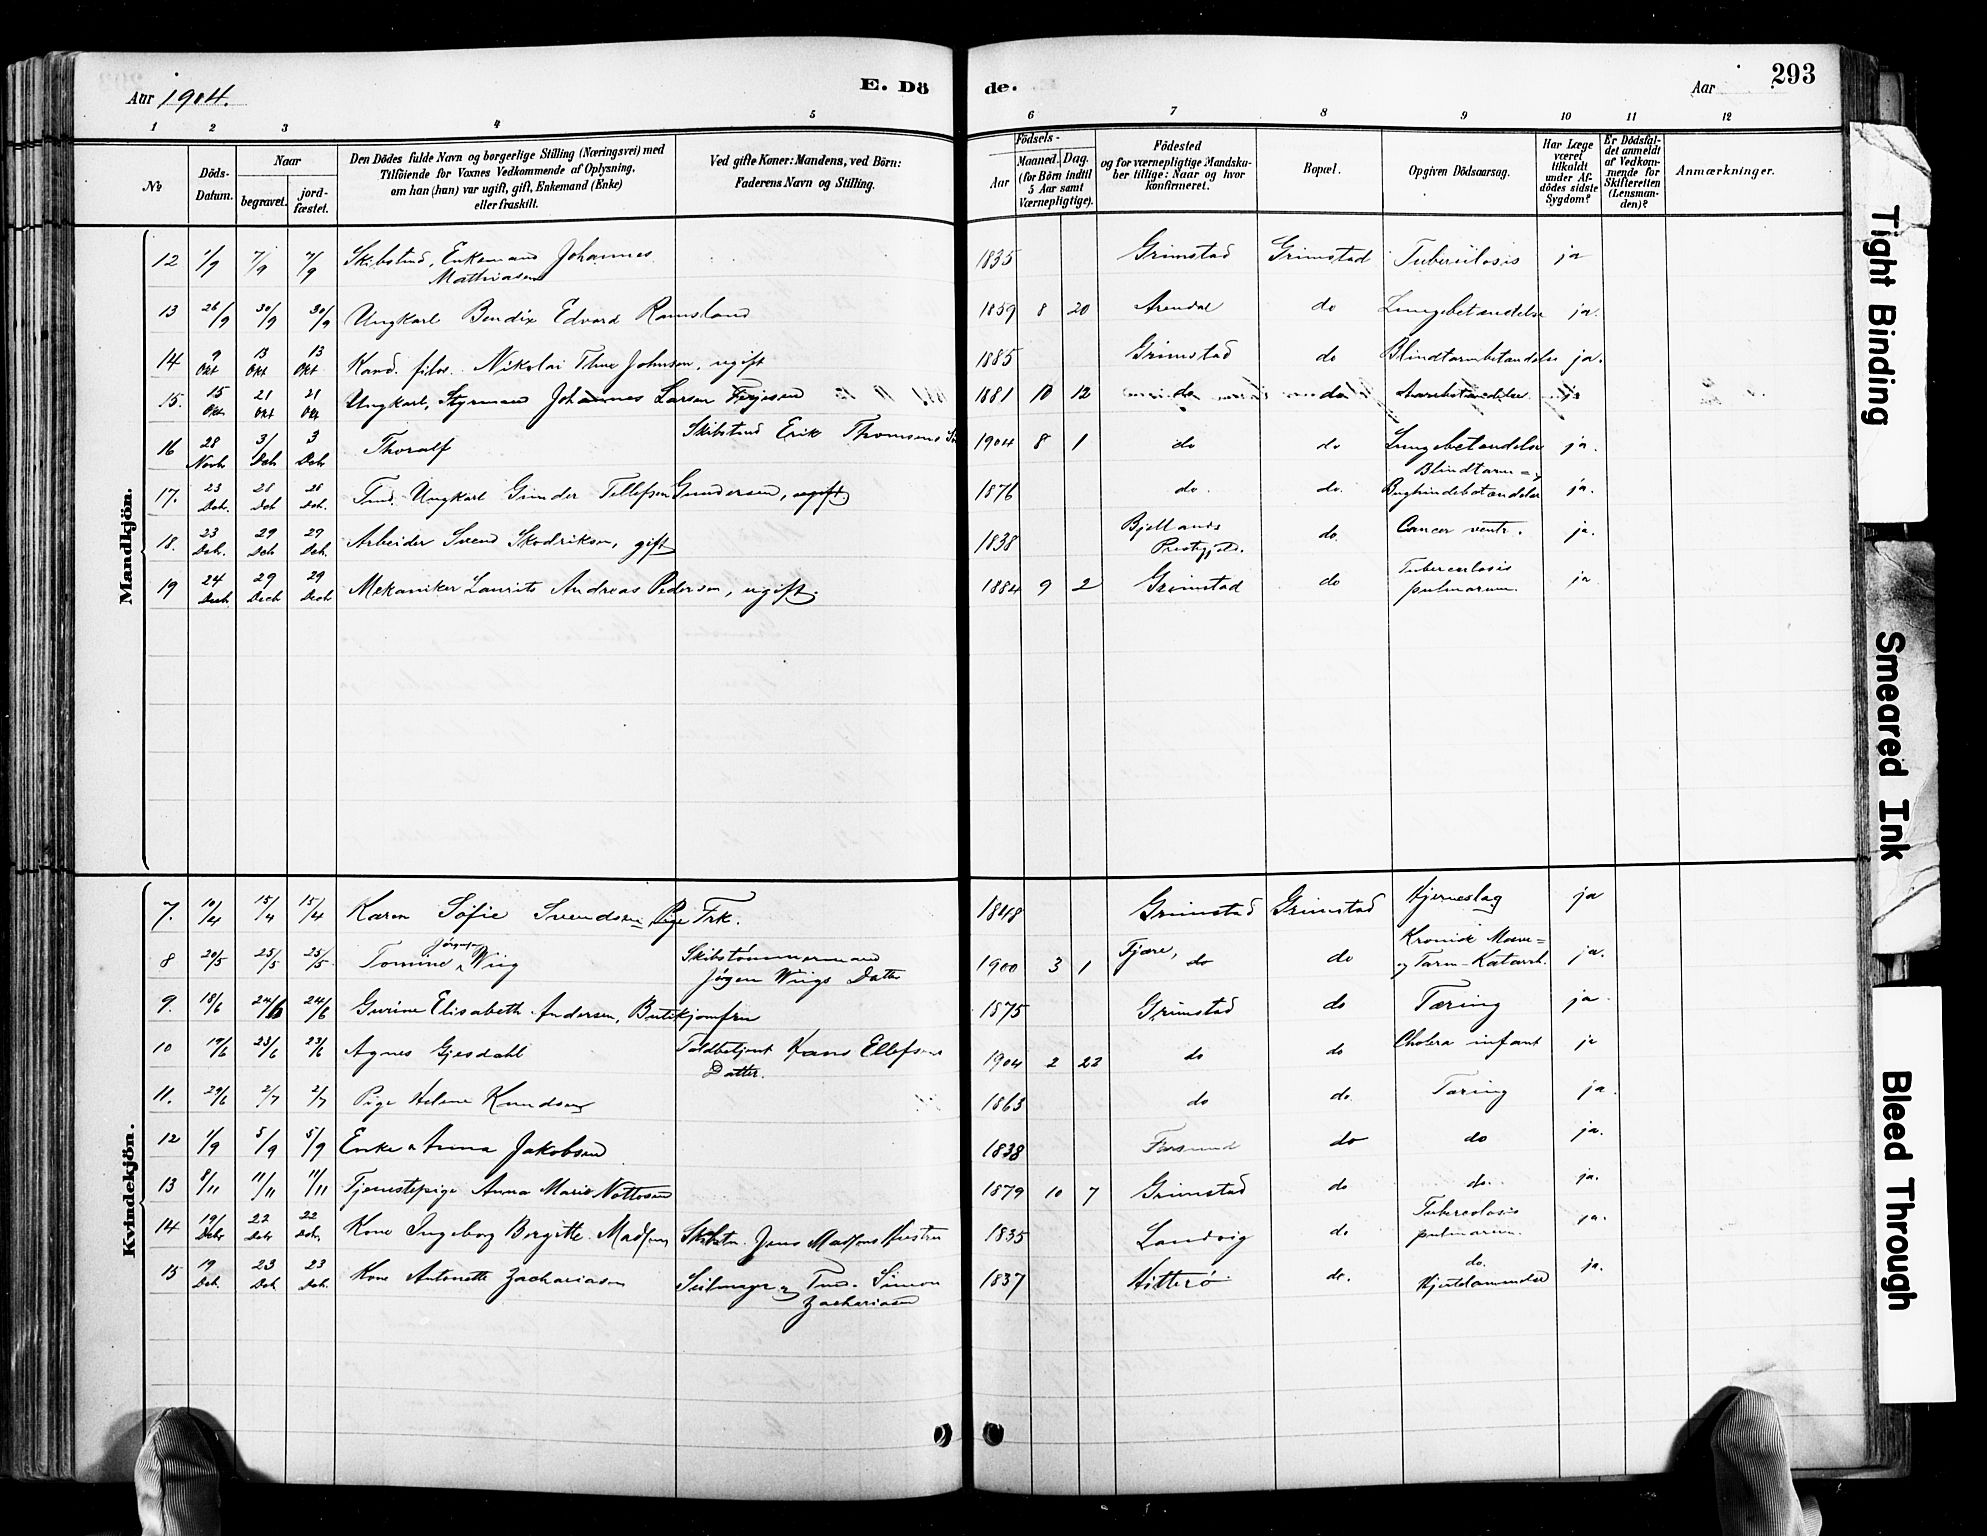 Aar 1904. E. Dö de. Aar 293
1 2 3 4 5 6 7 8 9 10 11 12
№ Döds-Datum. Naar begravet. jord-fæstet. Den Dödes fulde Navn og borgerlige Stilling (Næringsvei) med Tilföiende for Voxnes Vedkommende af Oplysning, om han (hun) var ugift, gift, Enkemand (Enke) eller fraskilt. Ved gifte Koner: Mandens, ved Börn: Faderens Navn og Stilling. Födsels- Aar Maaned. Dag. (for Börn indtil 5 Aar samt Værnepligtige). Födested og for værnepligtige Mandska-ber tillige: Naar og hvor konfirmeret. Bopæl. Opgiven Dödsaarsag. Har Læge været tilkaldt under Af-dödes sidste Sygdom? Er Dödsfal-det anmeldt af Vedkom-mende for Skifteretten (Lensman-den)? Anmærkninger.
Mandkjön.
12 1/9 7/9 7/9 Skibstmd, Enkemand Johannes Mathiasen 1835 Grimstad Grimstad Tuberculosis ja
13 26/9 30/9 30/9 Ungkarl Bendix Edvard Ramsland 1859 8 20 Arendal do Lungebetændelse ja.
14 9 Okt 13 Okt 13 Okt. Kand. filos. Nikolai Johnsen, ugift 1885 Grimstad do Blindtarmbetændelse ja.
15. 15 Okt. 21 Okt 21 Okt Ungkarl, Styrmand Johannes Larsen Terjesen 1881 10 12 do do ja
16 28 Novb. 3/ Dcb 3 Dcb Thoralf Skibstmd Erik Thomsens 1904 8 1 do do Lungebetændelse ja.
17. 23 Dcb. 28 Dcb 28 Dcb. Tmd. Ungkarl Gunder Tellefsen Gundersen, ugift. 1876 do. do. Blindtarm- og Bughindebetændelse ja.
18. 23 Dcb. 29 Dcb 29 Dcb. Arbeider Svend Skodriksen, gift 1838 Bjellands Prestgjeld. do. Cancer ventr. ja.
19 24 Decb 29 Decb 29 Decb Mekaniker Laurits Andreas Pedersen, ugift. 1884 9 2 Grimstad do Tuberculosis pulmorum. ja
Kvindekjön.
7. 10/4 15/4 15/4 Karen Sofie Svendsen Pige Frk. 1848 Grimstad Grimstad Hjerneslag ja
8 20/5 25/5 25/5. Tomine Jörgensen Wiig Skibstömmermand Jörgen Wiigs Datter 1900 3 1 Fjære, do do Kronisk Mave- og Tarm-Katarrh. ja.
9. 18/6 24/6 24/6 Gurine Elisabeth Andersen, Butikjomfru 1875 Grimstad do Tæring ja.
10 19/6 23/6 23/6 Agnes Gjesdahl Toldbetjent Hans Ellefsens Datter. 1904 2 23 do do Cholera infant ja
11. 29/6 2/7 2/7 Pige Helene Knudsen 1863 do do. Tæring ja.
12 1/9 5/9 5/9 Enke Anna Jakobsen 1838 Farsund do do ja.
13 8/11 11/11 11/11 Tjenestepige Anna Marie Nottosen 1879 10 7 Grimstad do do. ja.
14 19/ Dcbr 22 Dcbr 22 Dcb. Kone Ingeborg Borgitte Madsen Skibstm. Jens Madsens Hustru 1835 Landvig do Tuberculosis pulmorum. ja.
15 19 Dcb. 23 Dcb 23 Dcb. Kone Antonette Zachariasen Seilmager og Tmd. Simon Zachariasen 1837 Hitterö do. do. Hjertelammelse ja.
Tight Binding
Smeared Ink
Bleed Through